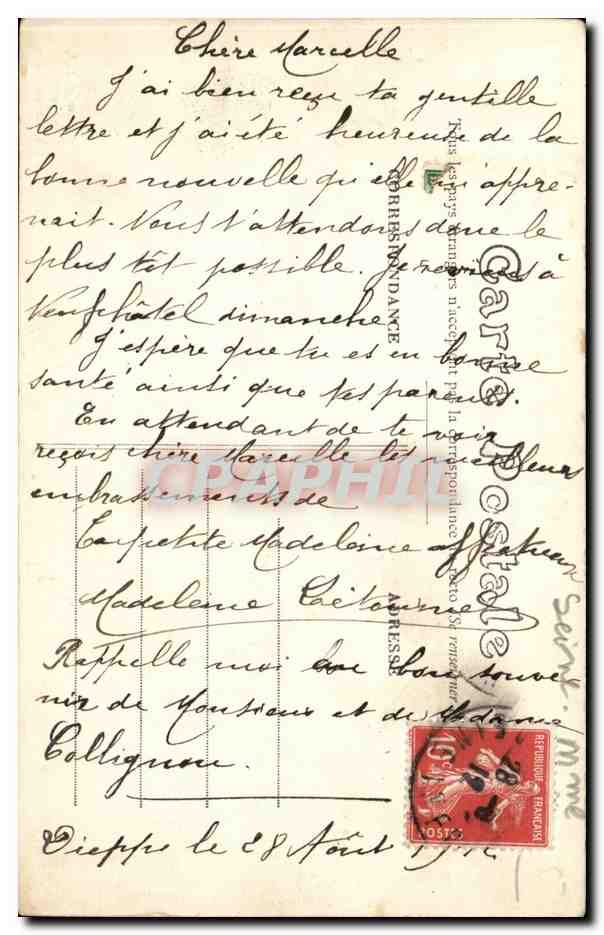 Chère Marcelle
J'ai bien reçu ta gentille
lettre et j'ai été heureuse de la
bonne nouvelle qu'elle m'appre-
nait. Nous t'attendons donc le
plus tôt possible. Je reviens à
Neufchâtel dimanche.
J'espère que tu es en bonne
santé ainsi que tes parents.
En attendant de te voir
reçois chère Marcelle les meilleurs
embrassements de
Ta petite Madeleine affectueuse
Madeleine Létournel
Rappelle moi au bon souve-
nir de Monsieur et de Madame
Collignon.
Dieppe le 28 Août
Carte Postale
Tous les pays étrangers n'acceptent pas la correspondance au recto (Se renseigner
CORRESPONDANCE
ADRESSE
CPAPHIL
REPUBLIQUE FRANÇAISE
10
POSTES
Seine. Mme